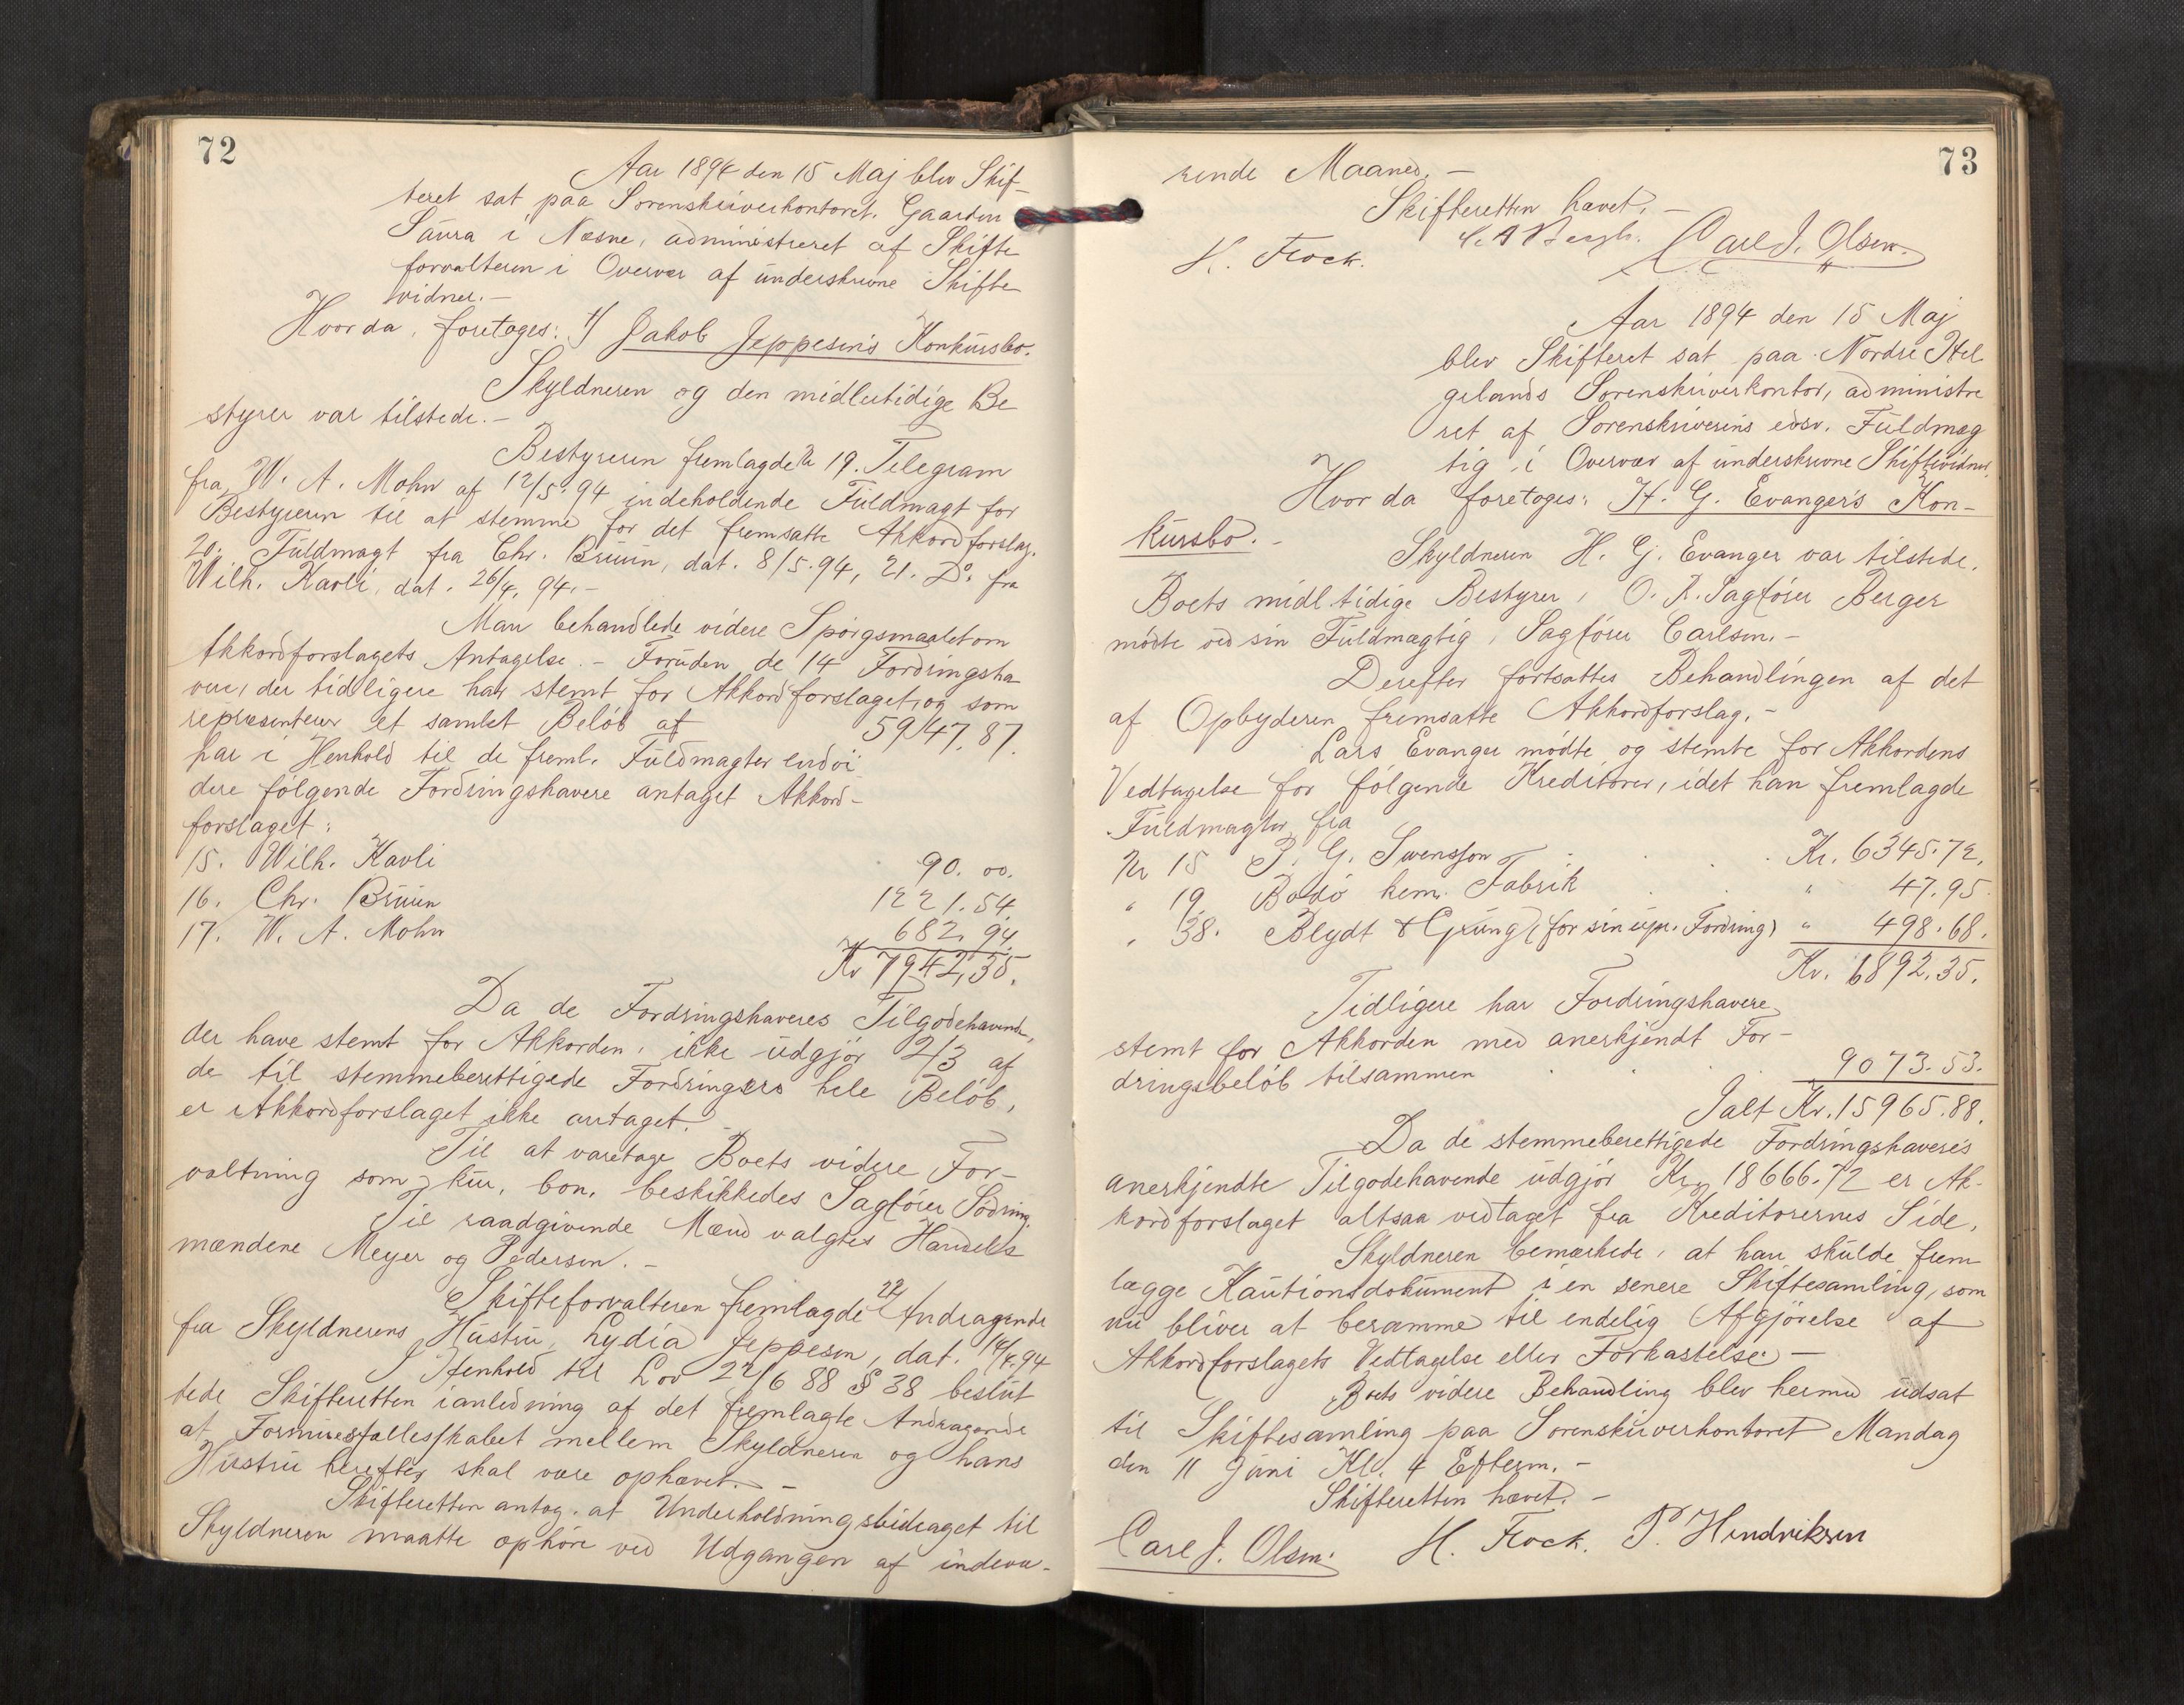 72
Aar 1894 den 15 Maj blev Skif-
teret sat paa Sorenskriverkontoret. Gaarden
Saura i Nesne, administreret af Skifte
forvalteren i Overvær af underskrevne Skifte
vidner. -
Hvor da, foretoges: 1/ Jakob Jeppesen's Konkursbo.
Skyldneren og den midlertidige Be
styrer var tilstede. -
Bestyreren fremlagde № 19. Telegram
fra W. A. Mohn af 12/5. 94 indeholdende Fuldmagt for
Bestyreren til at stemme for det fremsatte Akkordforslag.
20. Fuldmagt fra Chr. Bruun, dat. 8/5. 94, 21. Do. fra
Wilh. Kavli, dat. 26/4. 94. -
Man behandlede videre Spørgsmaalet om
Akkordforslagets Antagelse. - Foruden de 14 Fordringsha
vere, der tidligere har stemt for Akkordforslaget, og som
repræsenterer et samlet Beløb af 5947.87.
har i Henhold til de freml. Fuldmagter endvi
dere følgende Fordringshavere antaget Akkord-
forslaget:
15. Wilh. Kavli 90. 00.
16. Chr. Bruun 1221.54
17. W. A. Mohn 682.94.
Kr 7942,35.
Da de Fordringshaveres Tilgodehavende,
der have stemt for Akkorden, ikke udgjør 2/3 af
de til stemmeberettigede Fordringers hele Beløb,
er Akkordforslaget ikke antaget. -
Til at varetage Boets videre For-
valtning som kur. bon. beskikkedes Sagfører Sødring.
Til raadgivende Mænd valgtes Handels
mændene Meyer og Pedersen. -
Skifteforvalteren fremlagde 22/ Andragende
fra Skyldnerens Hustru, Lydia Jeppesen, dat. 14/4.94
I Henhold til Lov 29/6 88 § 38 beslut
tede Skifteretten i anledning af det fremlagte Andragende
at Formuesfællesskabet mellem Skyldneren og hans
Hustru herefter skal være ophævet. -
Skifteretten antog. at Underholdningsbidraget til
Skyldneren maatte ophøre ved Udgangen af indevæ-
73
rende Maaned. -
Skifteretten hævet. -
H. Frock. Carl J. Olsen.
Aar 1894 den 15 Maj
blev Skifteret sat paa Nordre Hel
gelands Sorenskriverkontor, administre
ret af Sorenskriverens edsv. Fuldmæg
tig, i Overvær af underskrevne Skiftevidner.
Hvor da foretoges: H. G. Evanger's Kon-
kursbo. -
Skyldneren H. Gj. Evanger var tilstede.
Boets midl.tidige Bestyrer, O. R. Sagfører Berger
mødte ved sin Fuldmægtig, Sagfører Carlsen. -
Derefter fortsattes Behandlingen af det
af Opbyderen fremsatte Akkordforslag. -
Lars Evanger mødte og stemte for Akkordens
Vedtagelse for følgende Kreditorer, idet han fremlagde
Fuldmagter fra
Nr 15 P. G. Svensson Kr. 6345.72.
" 19 Bodø kem. Fabrik " 47.95
" 38. Blydt & Grung (for sin opr. Fordring) " 498.68.
Kr. 6892.35.
Tidligere har Fordringshavere
stemt for Akkorden med anerkjendt For-
dringsbeløb tilsammen 9073.53.
Ialt Kr. 15965.88.
Da de stemmeberettigede Fordringshavere's
anerkjendte Tilgodehavende udgjør Kr. 18666.72 er Ak-
kordforslaget altsaa vedtaget fra Kreditorernes Side.
Skyldneren bemærkede, at han skulde frem
lægge Kautionsdokument i en senere Skiftesamling, som
nu bliver at beramme til endelig Afgjørelse af
Akkordforslagets Vedtagelse eller Forkastelse -
Boets videre Behandling blev hermed udsat
til Skiftesamling paa Sorenskriverkontoret Mandag
den 11 Juni Kl. 4 Efterm. -
Skifteretten hævet. -
Carl J. Olsen. H. Frock. P. Hendriksen